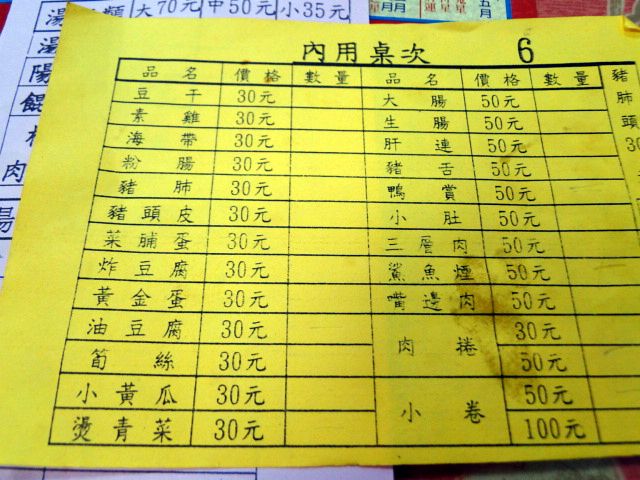 大70元 中50元 小35元
內用桌次 6
品名 價格 數量 品名 價格 數量
豆干 30元 大腸 50元
素雞 30元 生腸 50元
海帶 30元 肝連 50元
粉腸 30元 豬舌 50元
豬肺 30元 鴨賞 50元
豬頭皮 30元 小肚 50元
菜脯蛋 30元 三層肉 50元
炸豆腐 30元 鯊魚煙 50元
黃金蛋 30元 嘴邊肉 50元
油豆腐 30元 肉捲 30元
筍絲 30元 50元
小黃瓜 30元 小卷 50元
燙青菜 30元 100元
豬
肺
頭